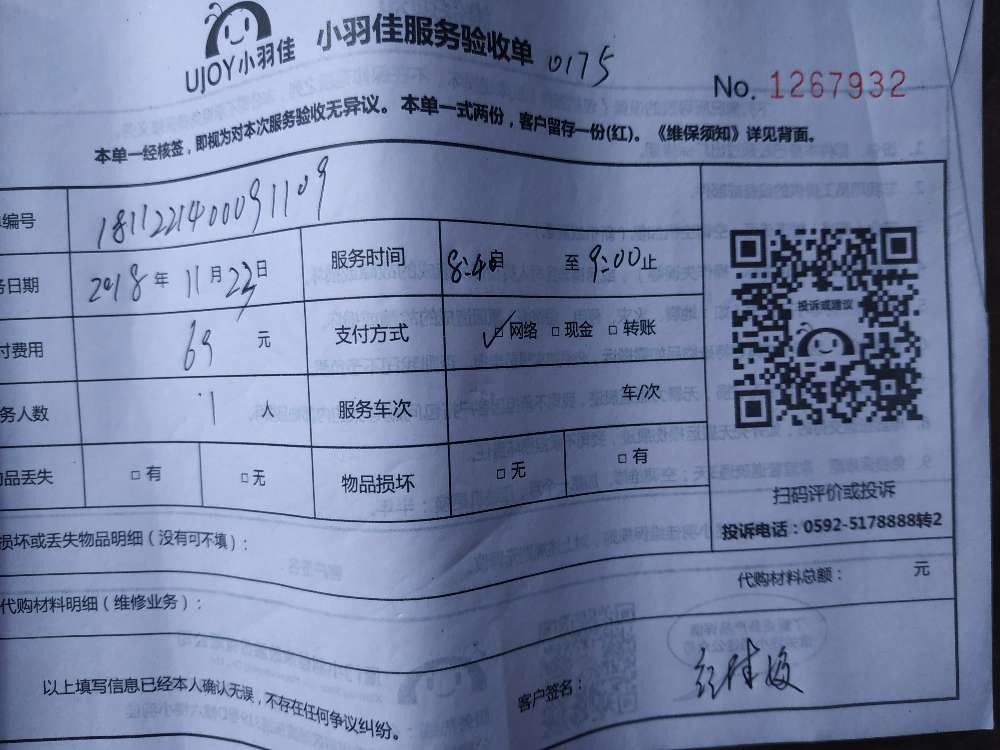 UJOY小羽佳 小羽佳服务验收单 0175
No. 1267932
本单一经核签，即视为对本次服务验收无异议。本单一式两份，客户留存一份(红)。《维保须知》详见背面。
编号 1811221400091109
日期 2018年11月23日 服务时间 8:40 至 9:00止
付费用 69 元 支付方式 ✓□网络 □现金 □转账
务人数 1 人 服务车次 车/次
品丢失 □有 □无 物品损坏 □无 □有
投诉或建议
扫码评价或投诉
投诉电话：0592-5178888转2
损坏或丢失物品明细（没有可不填）：
代购材料总额： 元
代购材料明细（维修业务）：
以上填写信息已经本人确认无误，不存在任何争议纠纷。
客户签名：